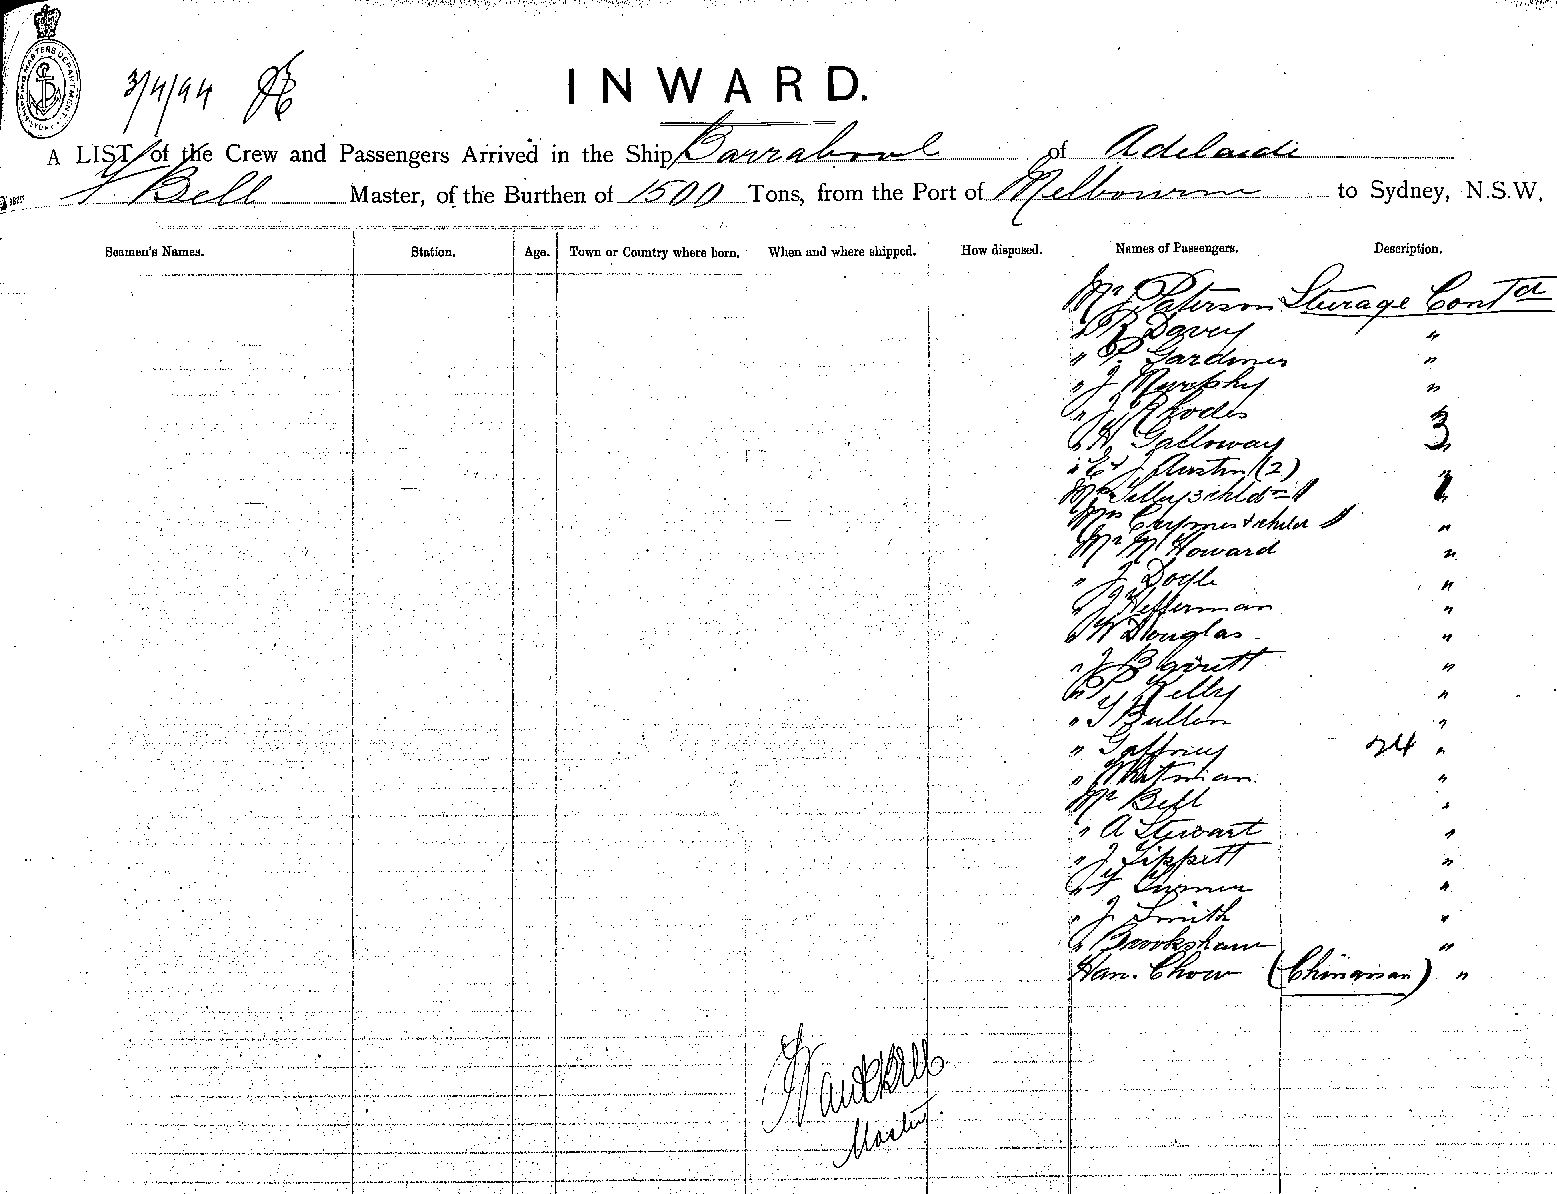 3/4/94
INWARD.
A LIST of the Crew and Passengers Arrived in the Ship Barrabool of Adelaide
Bell Master, of the Burthen of 1500 Tons, from the Port of Melbourne to Sydney, N.S.W.
Seamen's Names. Station. Age. Town or Country where born. When and where shipped. How disposed. Names of Passengers. Description.
Mr J Paterson Steerage Contd
" R Davey "
" P Gardiner "
" J Murphy "
" J Rhodes
" H Galloway 3
" J Austin (2) "
3 child
Mrs & child "
Mr M Howard "
" J Doyle "
" J Heffernan "
" W Douglas "
" J Barrett "
" P Kelly "
" T Bullen "
" Gaffney 24 "
" Whitman "
Mr Bell "
" A Stewart "
" J Tippett "
" Turner "
" J Smith "
" Brookshaw "
Han Chow (Chinaman) "
Master